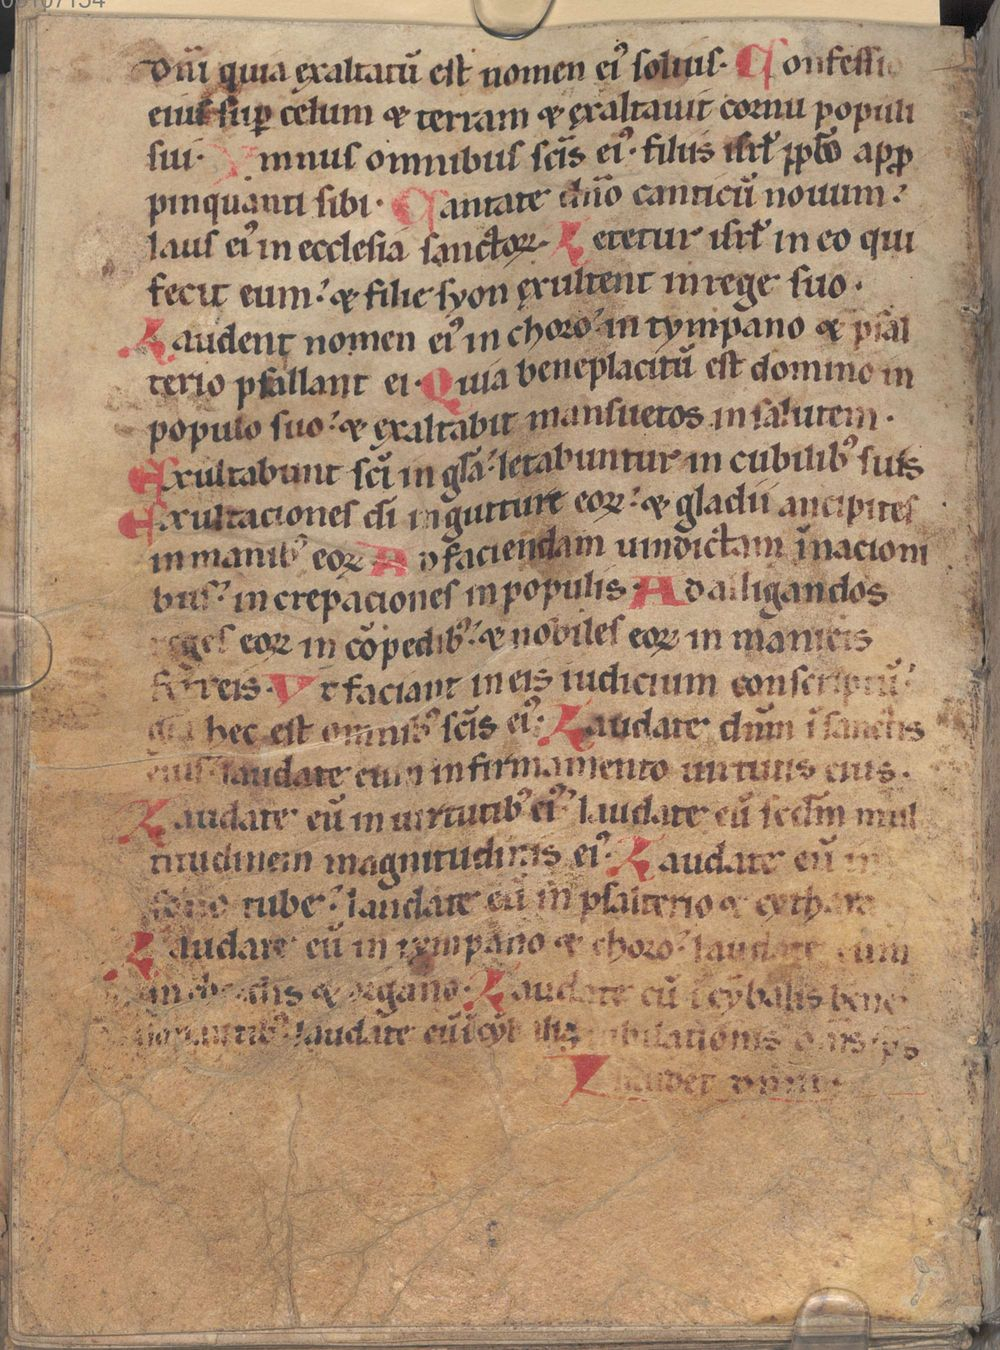 dñi quia exaltatũ est nomen ei⁹ solius. Confessio
eius sup celum & terram & exaltauit cornu populi
sui. Ymnus omnibus scĩs ei⁹. filiis isrl̃ ppl̃o app
pinquanti sibi. Cantate dño canticũ nouum.
laus ei⁹ in ecclesia sanctoꝝ. Letetur isrl̃ in eo qui
fecit eum. & filie syon exultent in rege suo.
Laudent nomen ei⁹ in choro. in tympano & psal
terio psallant ei. Quia beneplacitũ est domino in
populo suo. & exaltabit mansuetos in salutem.
Exultabunt scĩ in gl̃a. letabuntur in cubilib⁹ suis
Exultaciones di in gutture eoꝝ. & gladii ancipites
in manib⁹ eoꝝ Ad faciendam uindictam ĩ nacioni
bus. increpaciones in populis. Ad alligandos
reges eoꝝ in cõpedib⁹. & nobiles eoꝝ in manicis
ferreis. Vt faciant in eis iudicium conscriptũ.
gl̃a hec est omnib⁹ scĩs ei⁹. Laudate dñm ĩ sanctis
eius. laudate eum in firmamento uirtutis eius.
Laudate eũ in uirtutib⁹ ei⁹. laudate eũ scdm mul
titudinem magnitudinis ei⁹. Laudate eũ in
sono tube. laudate eũ in psalterio & cythara
Laudate eũ in tympano & choro. laudate eum
in chordis & organo. Laudate eũ ĩ cỹbalis bene
sonantib⁹. laudate eũ ĩ cỹbalis iubilationis o nis sps
Laudet dñm.